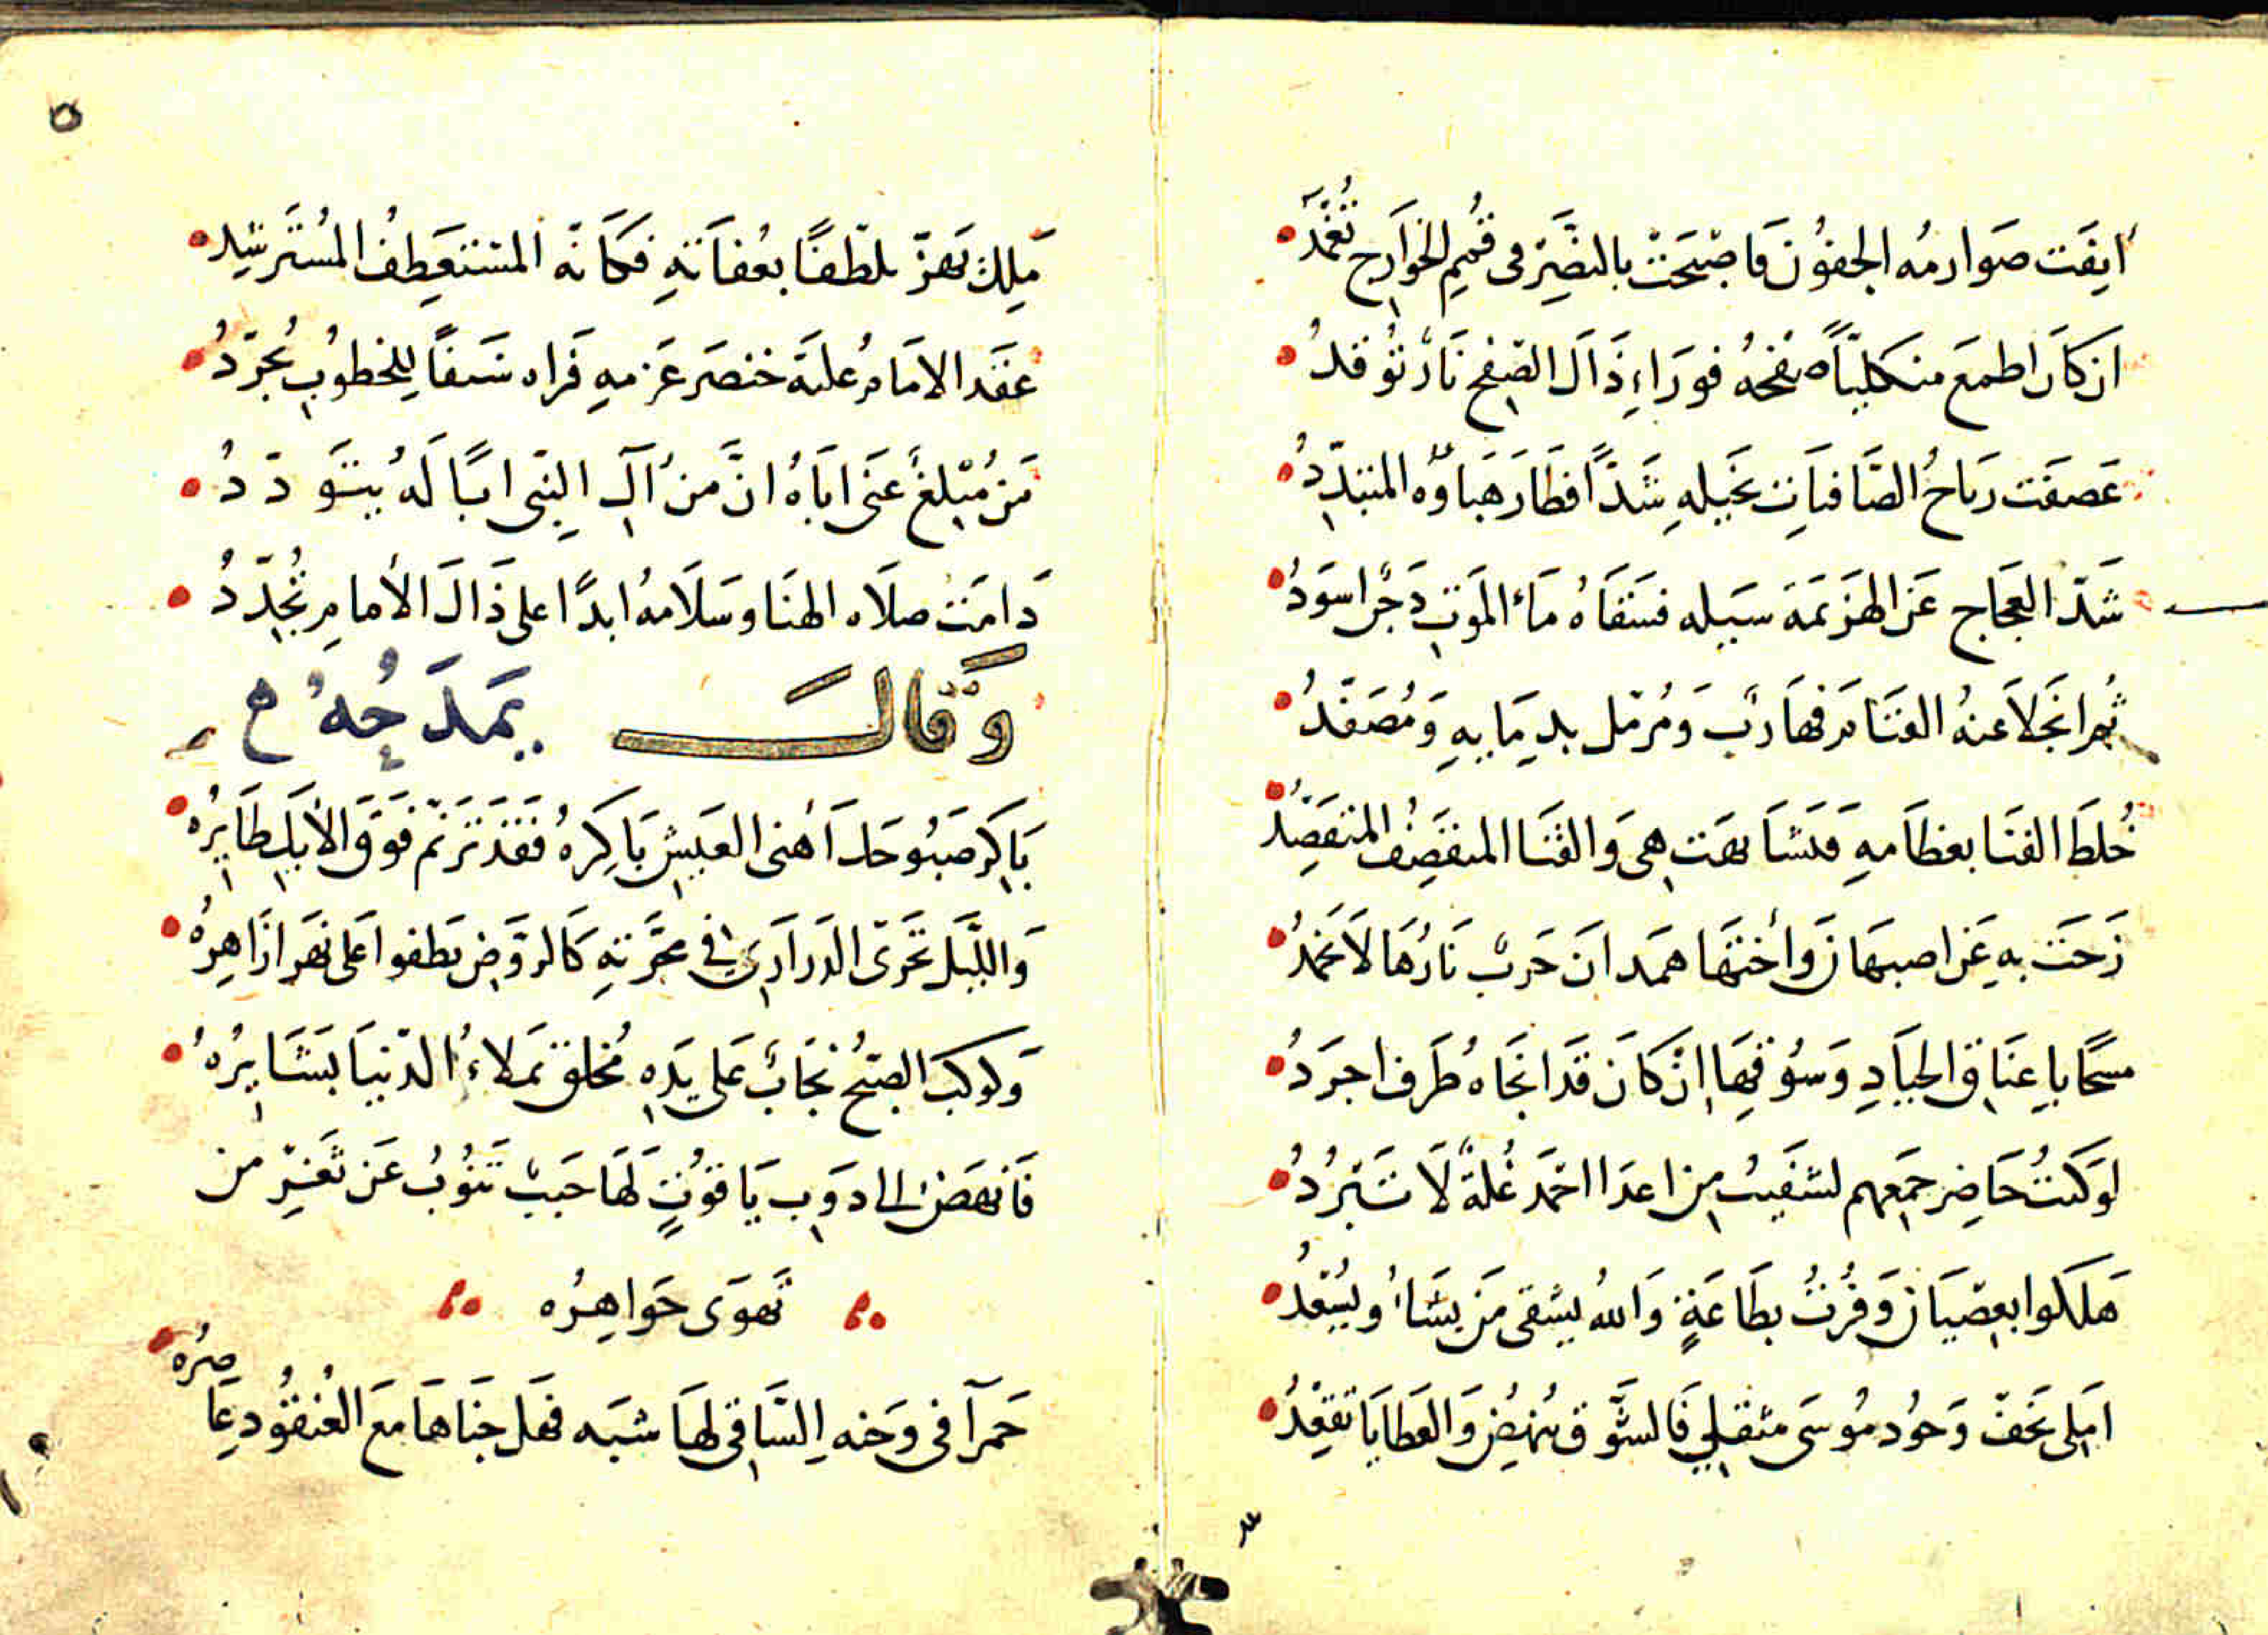 انِفَت صَوارمُه الجفوُن فَاصبَحَت بالنصَّر فى قمُم الخوَارج تُغمَدُ
ان كانَ اطمعَ منكليّاً صفحهُ فورَاءِ ذَاكَ الصّفح نارٌ توُقدُ
عَصفَت ريَاحُ الصَّافنَات بخَيله شَدّاً فطَارَ هبَاؤُه المتبدّدُ
سَدّ العجَاج عَن الهزَيمَة سَبيله فسَقاهُ مَاءُ الموَت دَجن اسوَدُ
ثُم انجَلا عنهُ القتَام فهَاربٌ وَمُرمّل بدِمَايهِ وَمُصَفّدُ
خُلطَ القنَا بعظَامهِ فتَشَابهَت هىَ وَالقنَا المنقصِفُ المتقصِّدُ
زَحَت بهِ عَن اصبهَان وَأختهَا همَدان حَربٌ نَارُهَا لَا تخمَدُ
مسحًا باعِنَاق الجيَادِ وَسُوقِهَا ان كانَ قدَ انجَاهُ طَرف اجرَدُ
لوَ كنتُ حَاضِر جمَعهم لشَفيتُ مِن اعدَا احمَد غُلةً لَا تَبَردُ
هَلكوا بعِصيَان وَفُزتُ بطَاعَةٍ وَاللهُ يشقى مَن يشَاءُ ويُسعدُ
امَلى يَخفّ وَجُود مُوسَى مثقلِي فَالشَّوق يُنهِضُ وَالعَطايَا تقعِدُ
٥
مَلِك يَهزّ تلطّفًا بعُفاتهِ فكَأنّه المستعَطِفُ المُستَرشِد
عقَد الامَامُ عليَه خنصَر عَزمهِ فَراه سَيفاً للِخطوُبِ يجُرّدُ
مَن مُبْلغٌ عَنى ابَاهُ انَّ منُ آلِ النِبّى ابًا لَهُ يتَودّدُ
دَامَت صلاَه الهنَا وسَلاَمهُ ابدًا على ذَاكَ الأمامِ تُجدّدُ
وَقالَ يَمدَحُهُ
بَاكِر صَبُوحَكَ أَهنى العَيش بَاكِرهُ فقَد تَرَنّم فَوقَ الأَيك طَايرُه
وَالليّل تجَرى الدَرارَى في مجَرّتهِ كَالرَّوَض يَطفوا عَلى نهَر ازَاهِرهُ
وَكوكبَ الصّبُح نجَابٌ عَلى يَدهِ مُخلق تمَلاءُ الدّنيَا بَشَايرُهُ
فَانهَضْ الى ذوَب يَاقوُتٍ لهَا حَببٌ تَنوُبُ عَن ثَغِر من
تَهوَى جَواهِرُه
حَمرآ فى وَجنه السَّاقى لهَا شبَه فهَل جنَاهَا مَع العُنقوُد عَاصرُه